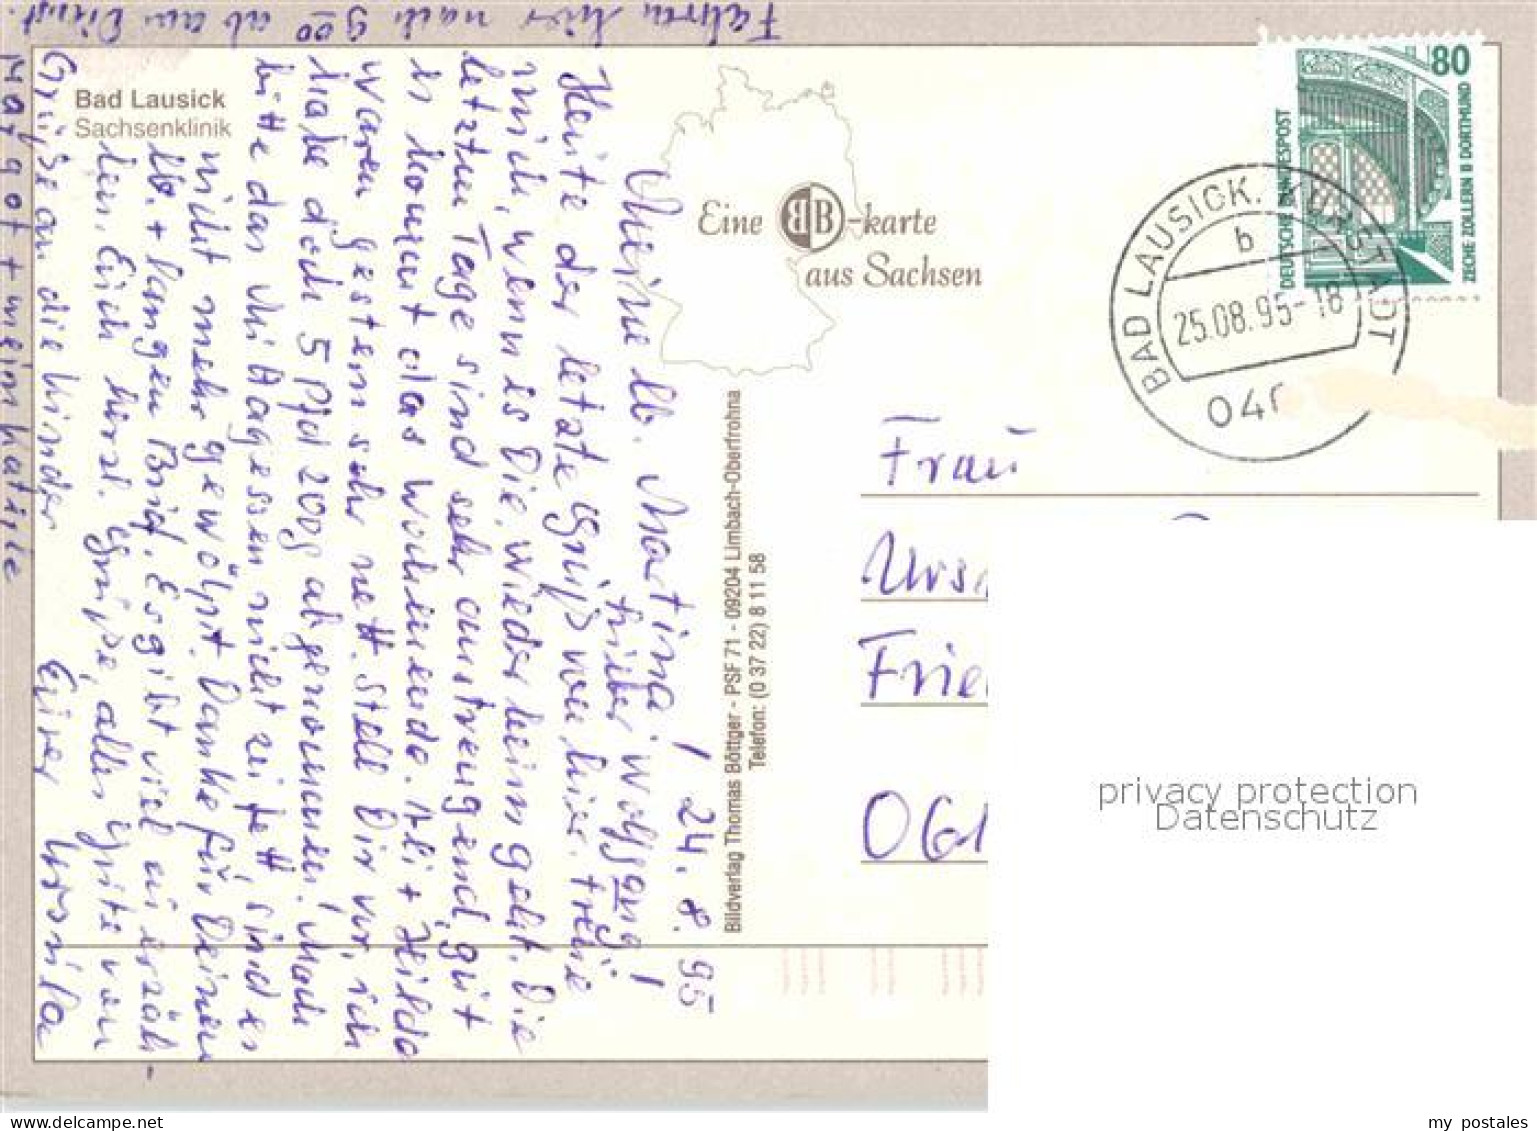 Bad Lausick
Sachsenklinik
Eine BB-karte
aus Sachsen
80
DEUTSCHE BUNDESPOST
ZECHE ZOLLERN II DORTMUND
BAD LAUSICK, KURSTADT
b
25.08.95-18
04r
Bildverlag Thomas Böttger - PSF 71 - 09204 Limbach-Oberfrohna
Telefon: (0 37 22) 8 11 58
24.8.95
Meine lb. Martina!
Lieber Wolfgang!
Heute der letzte Gruß von hier. freue
mich, wenn es Die. wieder heim geht. Die
letzten Tage sind sehr anstrengend, gut
es kommt das Wochenende. + Hilda
waren gestern sehr nett. stell Dir vor, ich
habe doch 5 Pfd 200g abgenommen. Mach
bitte das Mittagessen nicht zu fett, sind es
nicht mehr gewöhnt. Danke für Deinen
lb. + langen Brief. Es gibt viel zu erzäh-
len. Euch herzl. Grüße, alles Gute von
Grüße an die Kinder Eurer Ursula
Margot + mein Katille
Fahren hier nach 9.00 ab am Dienst.
Frau
Urs
Frie
061
privacy protection
Datenschutz
my postales